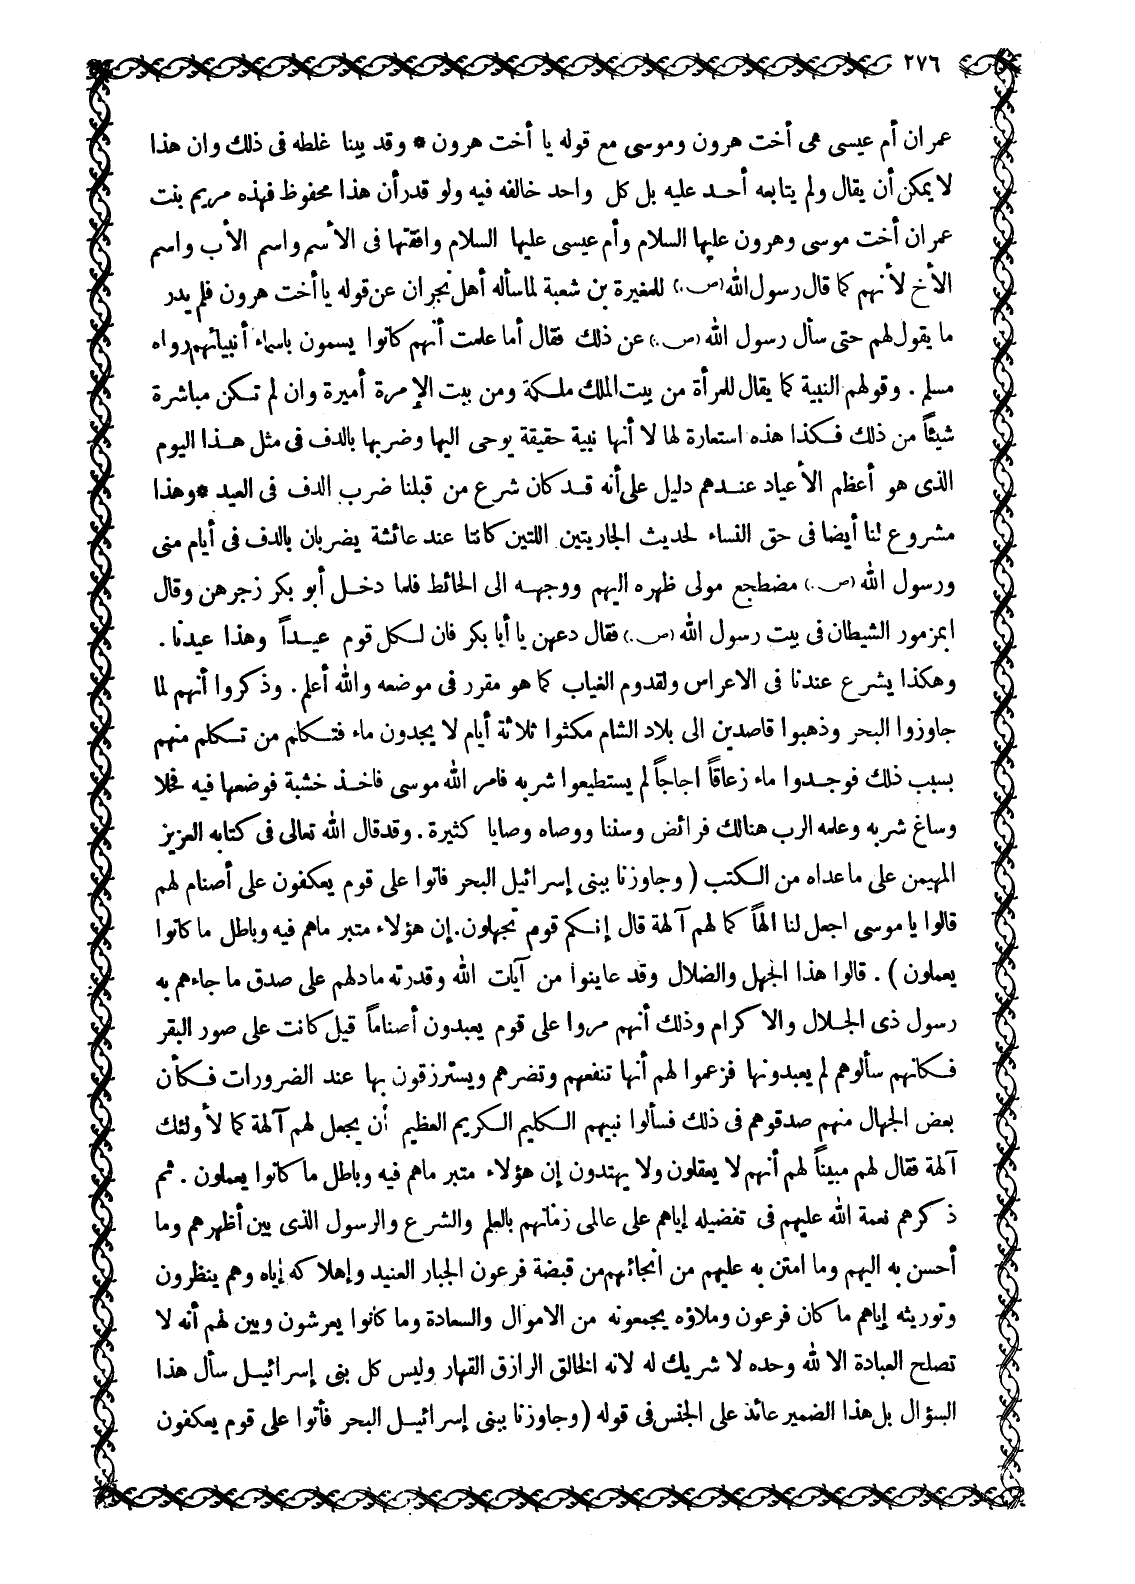 ٢٧٦
عمران أم عيسى هى أخت هرون وموسى مع قوله يا أخت هرون * وقد بينا غلطه فى ذلك وان هذا
لا يمكن أن يقال ولم يتابعه أحد عليه بل كل واحد خالفه فيه ولو قدر أن هذا محفوظ فهذه مريم بنت
عمران أخت موسى وهرون عليها السلام وأم عيسى عليها السلام وافقتها فى الأسم واسم الأب واسم
الأخ لأنهم كما قال رسول الله (ص.) للمغيرة بن شعبة لما سأله أهل نجران عن قوله يا أخت هرون فلم يدر
ما يقول لهم حتى سأل رسول الله (ص.) عن ذلك فقال أما علمت أنهم كانوا يسمون باسماء أنبيائهم رواه
مسلم . وقولهم النبية كما يقال للمرأة من بيت الملك ملكة ومن بيت الإمرة أميرة وان لم تكن مباشرة
شيئاً من ذلك فكذا هذه استعارة لها لا أنها نبية حقيقة يوحى اليها وضربها بالدف فى مثل هذا اليوم
الذى هو أعظم الأعياد عندهم دليل على أنه قد كان شرع من قبلنا ضرب الدف فى العيد * وهذا
مشروع لنا أيضا فى حق النساء لحديث الجاريتين اللتين كانتا عند عائشة يضربان بالدف فى أيام منى
ورسول الله (ص.) مضطجع مولى ظهره اليهم ووجهه الى الحائط فلما دخل أبو بكر زجرهن وقال
ابمزمور الشيطان فى بيت رسول الله (ص.) فقال دعهن يا أبا بكر فان لكل قوم عيداً وهذا عيدنا .
وهكذا يشرع عندنا فى الاعراس ولقدوم الغياب كما هو مقرر فى موضعه والله أعلم . وذكروا أنهم لما
جاوزوا البحر وذهبوا قاصدين الى بلاد الشام مكثوا ثلاثة أيام لا يجدون ماء فتكلم من تكلم منهم
بسبب ذلك فوجدوا ماء زعاقاً اجاجاً لم يستطيعوا شربه فامر الله موسى فاخذ خشبة فوضعها فيه فحلا
وساغ شربه وعلمه الرب هنالك فرائض وسننا ووصاه وصايا كثيرة . وقد قال الله تعالى فى كتابه العزيز
المهيمن على ما عداه من الكتب ( وجاوزنا ببنى إسرائيل البحر فاتوا على قوم يعكفون على أصنام لهم
قالوا يا موسى اجعل لنا الهاً كما لهم آلهة قال إنكم قوم تجهلون . إن هؤلاء متبر ماهم فيه وباطل ما كانوا
يعملون ) . قالوا هذا الجهل والضلال وقد عاينوا من آيات الله وقدرته ما دلهم على صدق ما جاءهم به
رسول ذى الجلال والاكرام وذلك أنهم مروا على قوم يعبدون أصناماً قيل كانت على صور البقر
فكانهم سألوهم لم يعبدونها فزعموا لهم أنها تنفعهم وتضرهم ويسترزقون بها عند الضرورات فكأن
بعض الجهال منهم صدقوهم فى ذلك فسألوا نبيهم الكليم الكريم العظيم أن يجعل لهم آلهة كما لأولئك
آلهة فقال لهم مبيناً لهم أنهم لا يعقلون ولا يهتدون إن هؤلاء متبر ماهم فيه وباطل ما كانوا يعملون . ثم
ذكرهم نعمة الله عليهم فى تفضيله إياهم على عالمى زمانهم بالعلم والشرع والرسول الذى بين أظهرهم وما
أحسن به اليهم وما امتن به عليهم من انجائهم من قبضة فرعون الجبار العنيد وإهلاكه إياه وهم ينظرون
وتوريثه إياهم ما كان فرعون وملاؤه يجمعونه من الاموال والسعادة وما كانوا يعرشون وبين لهم أنه لا
تصلح العبادة الا لله وحده لا شريك له لانه الخالق الرازق القهار وليس كل بنى إسرائيل سأل هذا
السؤال بل هذا الضمير عائذ على الجنس فى قوله ( وجاوزنا ببنى إسرائيل البحر فأتوا على قوم يعكفون